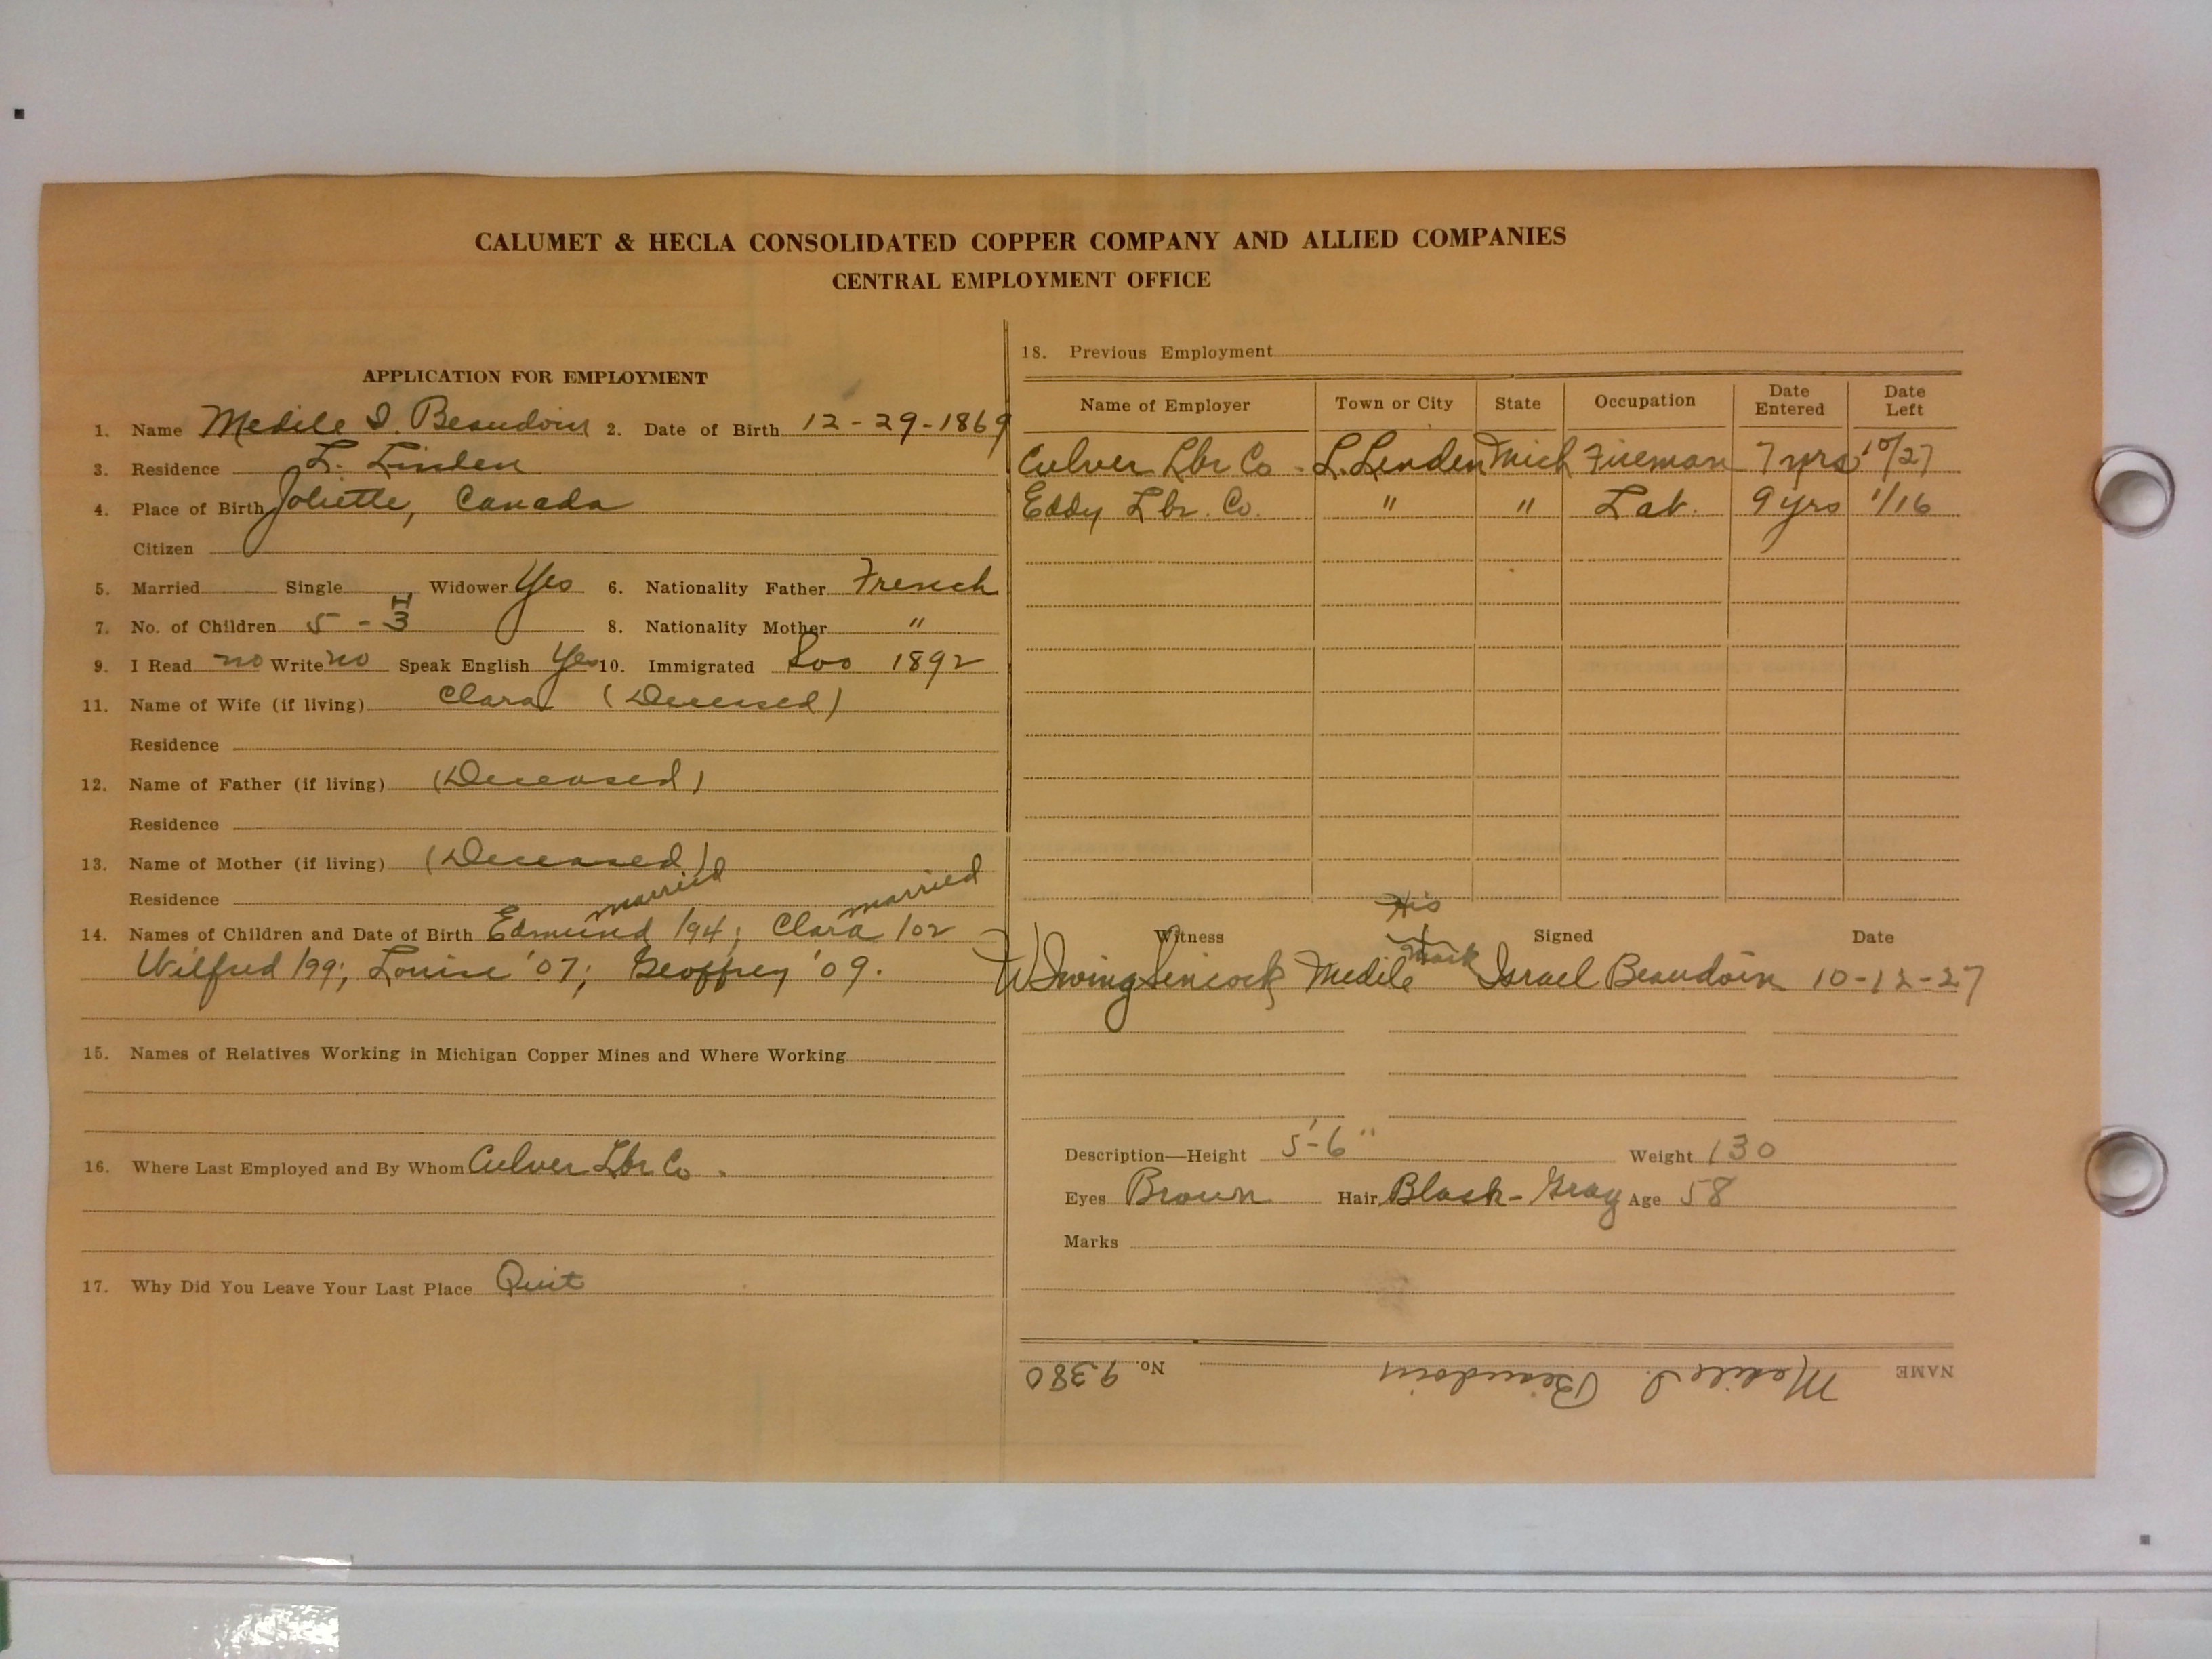 CALUMET & HECLA CONSOLIDATED COPPER COMPANY AND ALLIED COMPANIES
CENTRAL EMPLOYMENT OFFICE
APPLICATION FOR EMPLOYMENT
1. Name Medile I. Beaudoin 2. Date of Birth 12-29-1869
3. Residence L. Linden
4. Place of Birth Joliette, Canada
Citizen
5. Married Single Widower Yes 6. Nationality Father French
7. No. of Children 5 - 3 H 8. Nationality Mother "
9. I Read no Write no Speak English Yes 10. Immigrated Soo 1892
11. Name of Wife (if living) Clara (Deceased)
Residence
12. Name of Father (if living) (Deceased)
Residence
13. Name of Mother (if living) (Deceased)
Residence
married married
14. Names of Children and Date of Birth Edmund /94; Clara /02
Wilfred /99; Louise '07; Geoffrey '09.
15. Names of Relatives Working in Michigan Copper Mines and Where Working
16. Where Last Employed and By Whom Culver Lbr Co.
17. Why Did You Leave Your Last Place Quit
18. Previous Employment
Name of Employer Town or City State Occupation Date Entered Date Left
Culver Lbr Co - L. Linden Mich Fireman 7 yrs 10/27
Eddy Lbr. Co. " " Lab. 9 yrs 1/16
His
Witness Signed Date
W Irving Hincock Medile mark Israel Beaudoin 10-12-27
Description—Height 5'-6" Weight 130
Eyes Brown Hair Black-Gray Age 58
Marks
NAME Medile I. Beaudoin No. 9380